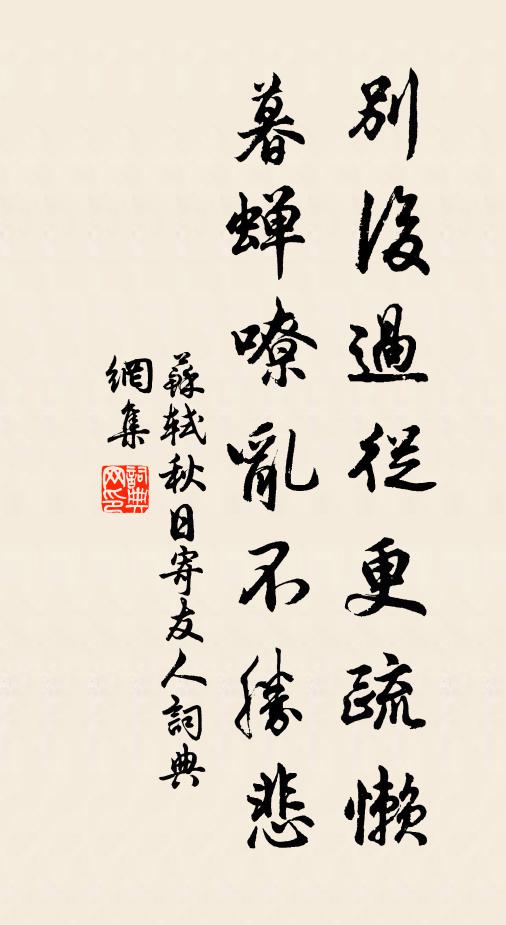 別後過從更疏懶
暮蟬嘹亂不勝悲
蘇軾秋日寄友人詞典
網集
詞典
网印